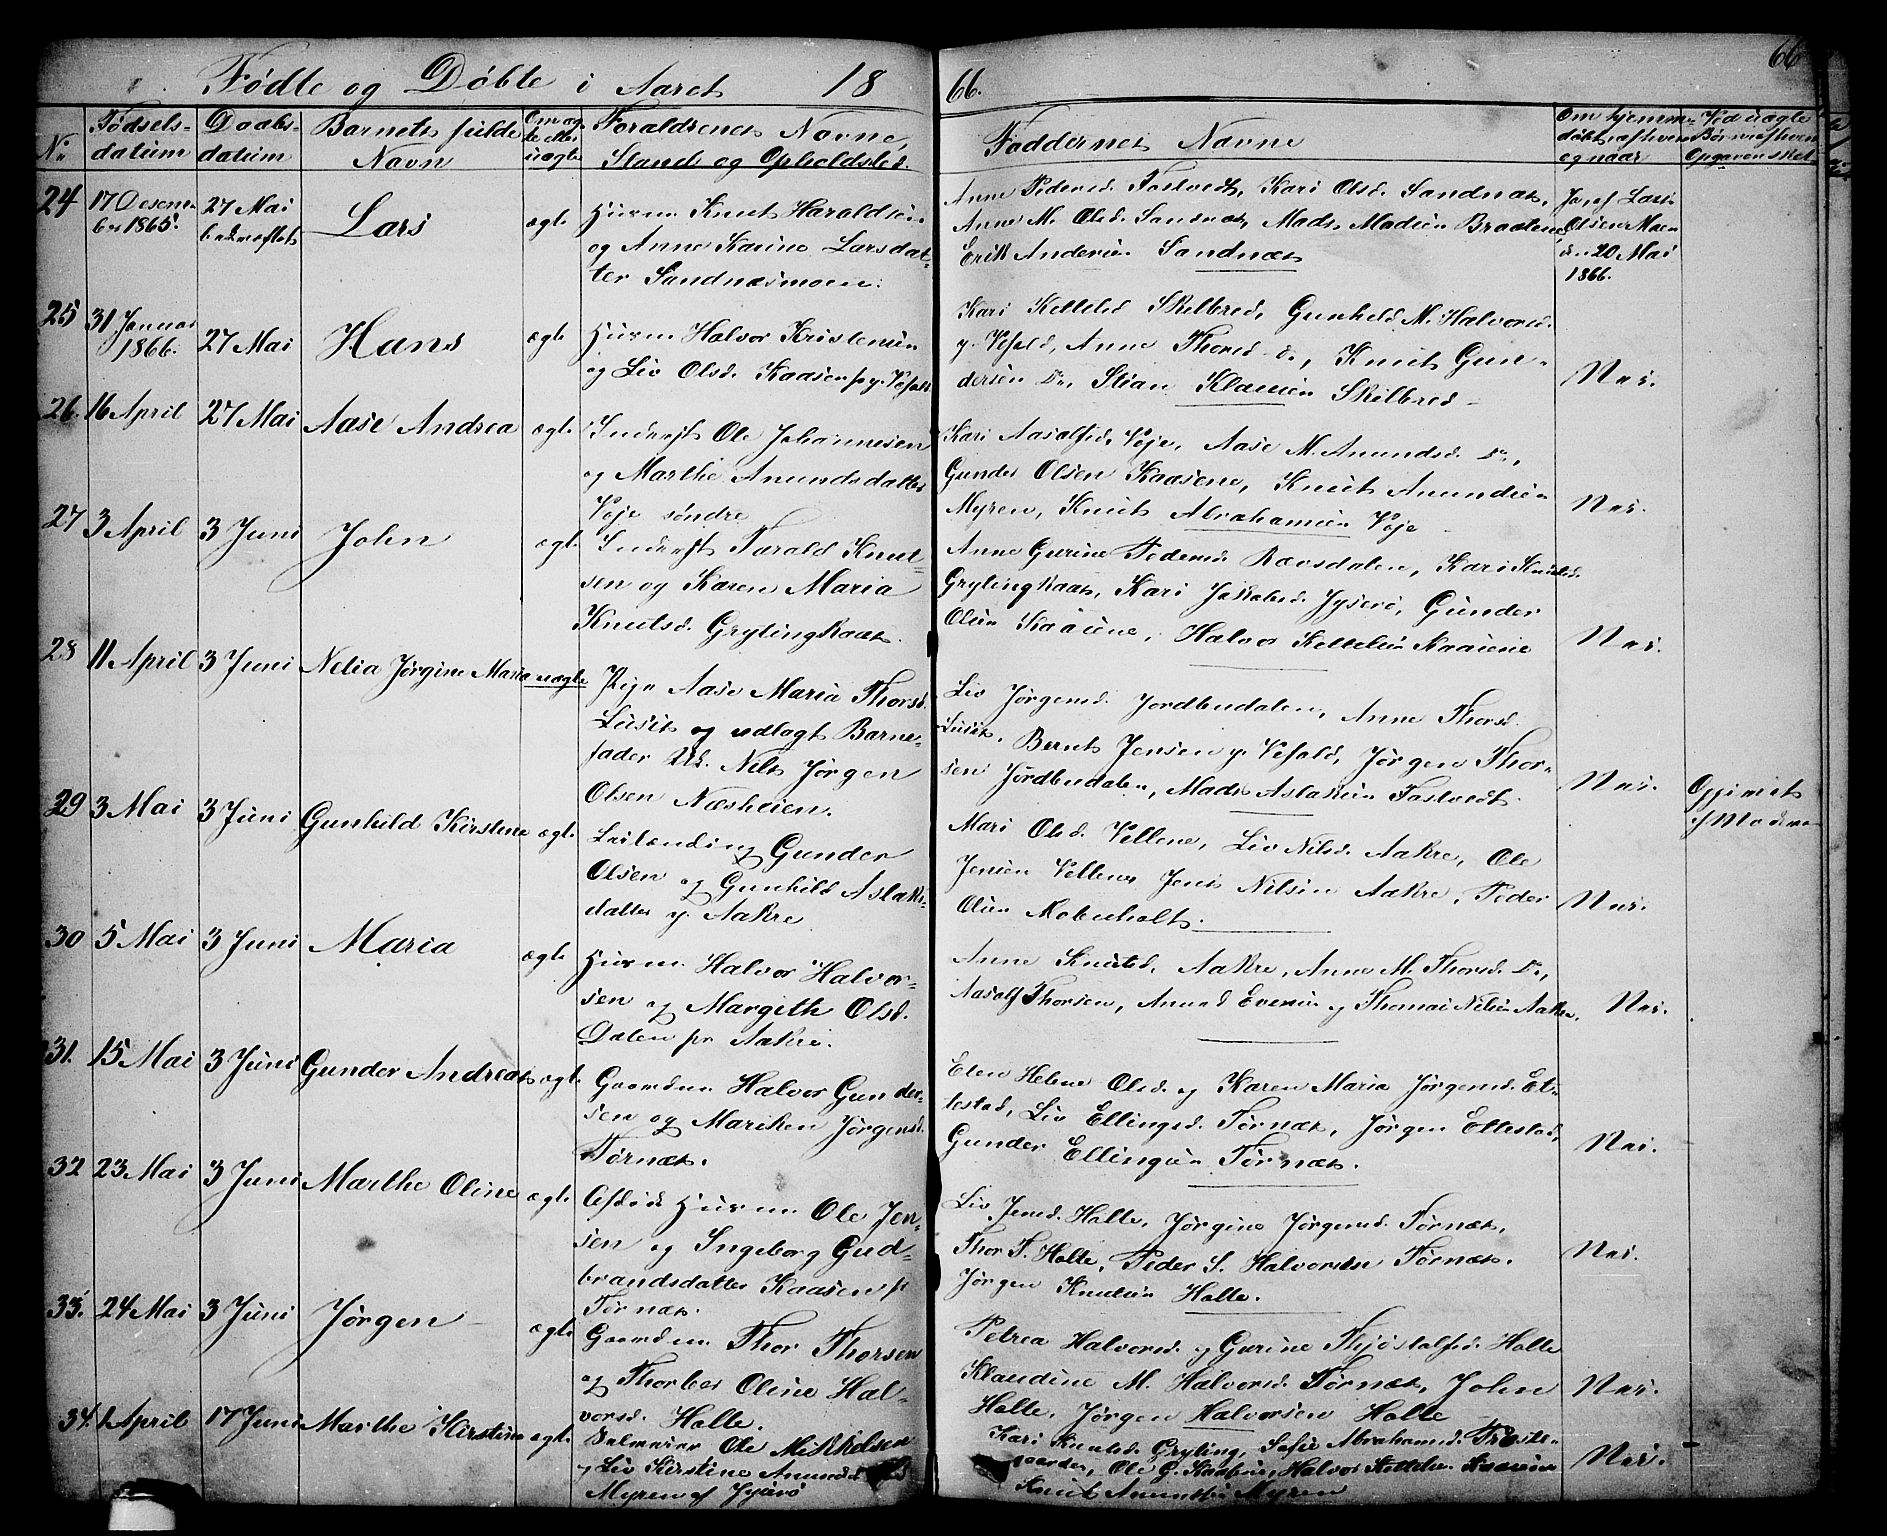 66
Fødte og Døbte i Aaret 1866.
No
Fødsels-
datum
Daabs-
datum
Barnets fulde
Navn
Om æg-
te eller
uægte
Forældrenes Navne,
Stand og Opholdsted.
Faddernes Navne
Om hjemme-
døbt, af hvem
og naar
Ved uægte
Børn af hvem
Opgaven skeet
24 17 Desem-
ber 1865.
27 Mai
bekræftet
Lars
ægte
Huusm. Knut Haraldsen
og Anne Karine Larsdat-
ter Sandnæsmoen.
Anne Pedersd. Tostvedt, Kari Olsd. Sandnæs,
Anne M. Olsd. Sandnæs, Mads Madsen Braatene
Erik Andersen Sandnæs
Josef Lars
Olsen Moen
den 20 Mai
1866.
25 31 Januar
1866.
27 Mai
Hans
ægte
Huusm. Halvor Kristensen
og Liv Olsd. Kaasen p. y. Vefald
Kari Kettelsd. Skilbred, Gunhild M. Halvorsd.
y. Vefald, Anne Thorsd. do, Knut Gun-
dersen Do, Stian Klausen Skilbred
Nei.
26. 16 April 27 Mai Aase Andrea ægte
Inderst Ole Johannesen
og Marthe Anundsdatter
Veje søndre
Kari Aasolfsd. Veje, Aase M. Anundsd. Do,
Gunder Olsen Kaasene, Knut Anundsen
Myren, Knut Abrahamsen Veje
Nei.
27 3 April 3 Juni John ægte
Inderst Tarald Knut-
sen og Karen Maria
Knutsd. Grytingkaas.
Anne Gurine Pedersd. Rævsdalen, Kari Knutsd.
Grytingkaas, Kari Jakobsd. Jyserø, Gunder
Olsen Kaasene, Halvor Kettelsen Kaasene
Nei.
28 11 April 3 Juni Nelia Jørgine Maria uægte
Pige Aase Maria Thorsd.
Lusit og udlagt Barne-
fader Uk. Nils Jørgen
Olsen Næsheien.
Liv Jørgensd. Jordbudalen, Anne Thorsd.
Lusit, Bernt Jensen y. Vefald, Jørgen Thor-
sen Jordbudalen, Mads Aslaksen Tostvedt.
Nei.
Opgivet
af Moderen
29 3 Mai 3 Juni Gunhild Kirstine ægte
Leilænding Gunder
Olsen og Gunhild Aslaks-
datter y. Aakre
Mari Olsd. Vellene, Liv Nilsd. Aakre, Ole
Jensen Vellene, Jens Nilsen Aakre, Peder
Olsen Kobenholt.
Nei.
30 5 Mai 3 Juni Maria ægte
Huusm. Halvor Halvor-
sen og Margith Olsd.
Dalen pr Aakre.
Anne Knutsd. Aakre, Anne M. Thorsd. Do,
Aasolf Thorsen, Anund Evensen og Thomas Nilsen Aakre.
Nei.
31. 15 Mai 3 Juni Gunder Andreas ægte
Gaardm. Halvor Gunder-
sen og Mariken Jørgensd.
Tørnæs.
Elen Helene Olsd. og Karen Maria Jørgensd. El-
lestad, Liv Ellingsd. Tørnæs, Jørgen Ellestad,
Gunder Ellingsen Tørnæs.
Nei.
32 23 Mai 3 Juni Marthe Oline ægte
Afdøde Huusm. Ole Jen-
sen og Ingeborg Gud-
brandsdatter Kaasen pr
Tørnæs.
Liv Jensd. Halle, Jørgine Jørgensd. Tørnæs,
Thor T. Halle, Peder S. Halvorsen Tørnæs.
Jørgen Knutsen Halle.
Nei.
33. 24 Mai 3 Juni Jørgen ægte
Gaardm. Thor Thorsen
og Thorber Oline Hal-
vorsd. Halle.
Petrea Halvorsd. og Gurine Thjøstolfsd. Halle
Klaudine M. Halvorsd. Tørnæs, John
Halle, Jørgen Halvorsen Halle
Nei.
34. 1 April 17 Juni Marthe Kirstine ægte
Selveier Ole Mikkelsen
og Liv Kirstine Anundsd.
Myren af Jyserø
Kari Knutsd. Gryting, Sofie Abrahamsd. Præste-
gaarden, Ole G. Kaasene, Halvor Kettelsen Kaasene
Knut Anundsen Myren
Nei.